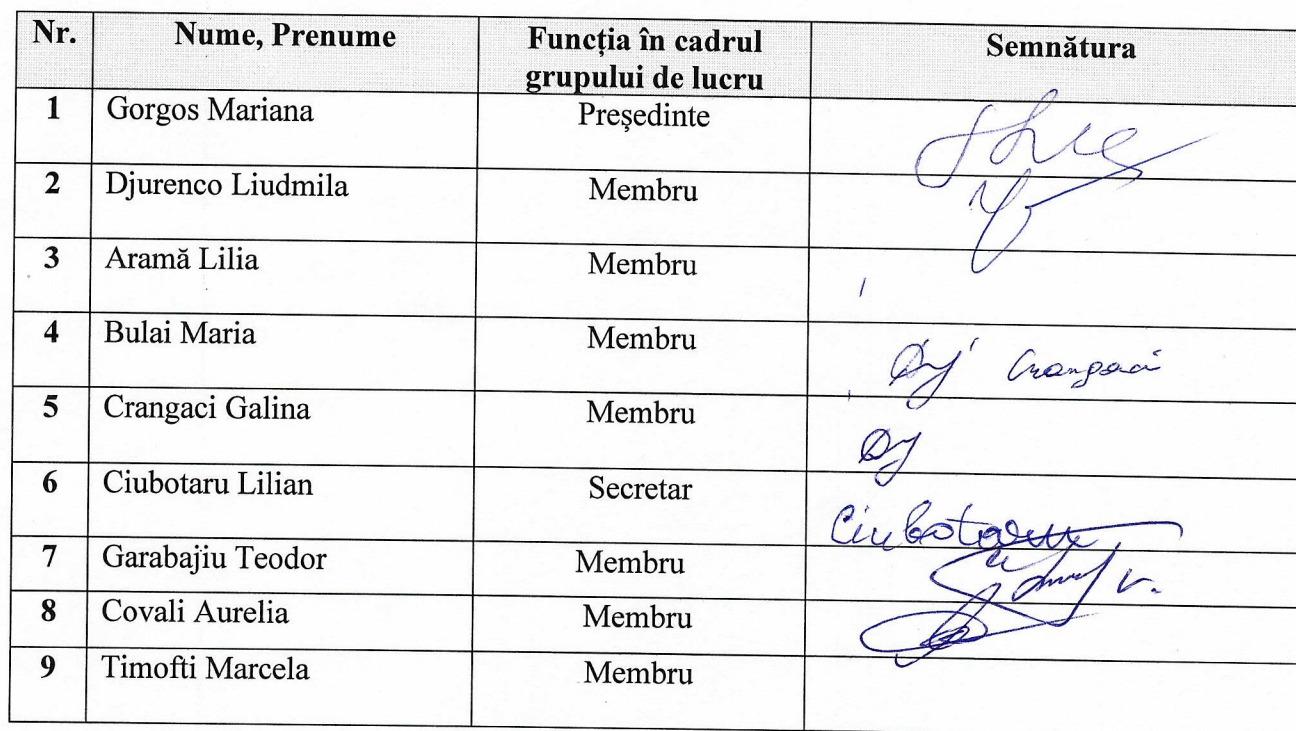 Nr. Nume, Prenume Funcția în cadrul grupului de lucru Semnătura
1 Gorgos Mariana Președinte
2 Djurenco Liudmila Membru
3 Aramă Lilia Membru
4 Bulai Maria Membru Crangaci
5 Crangaci Galina Membru
6 Ciubotaru Lilian Secretar Ciubotaru
7 Garabajiu Teodor Membru
8 Covali Aurelia Membru
9 Timofti Marcela Membru